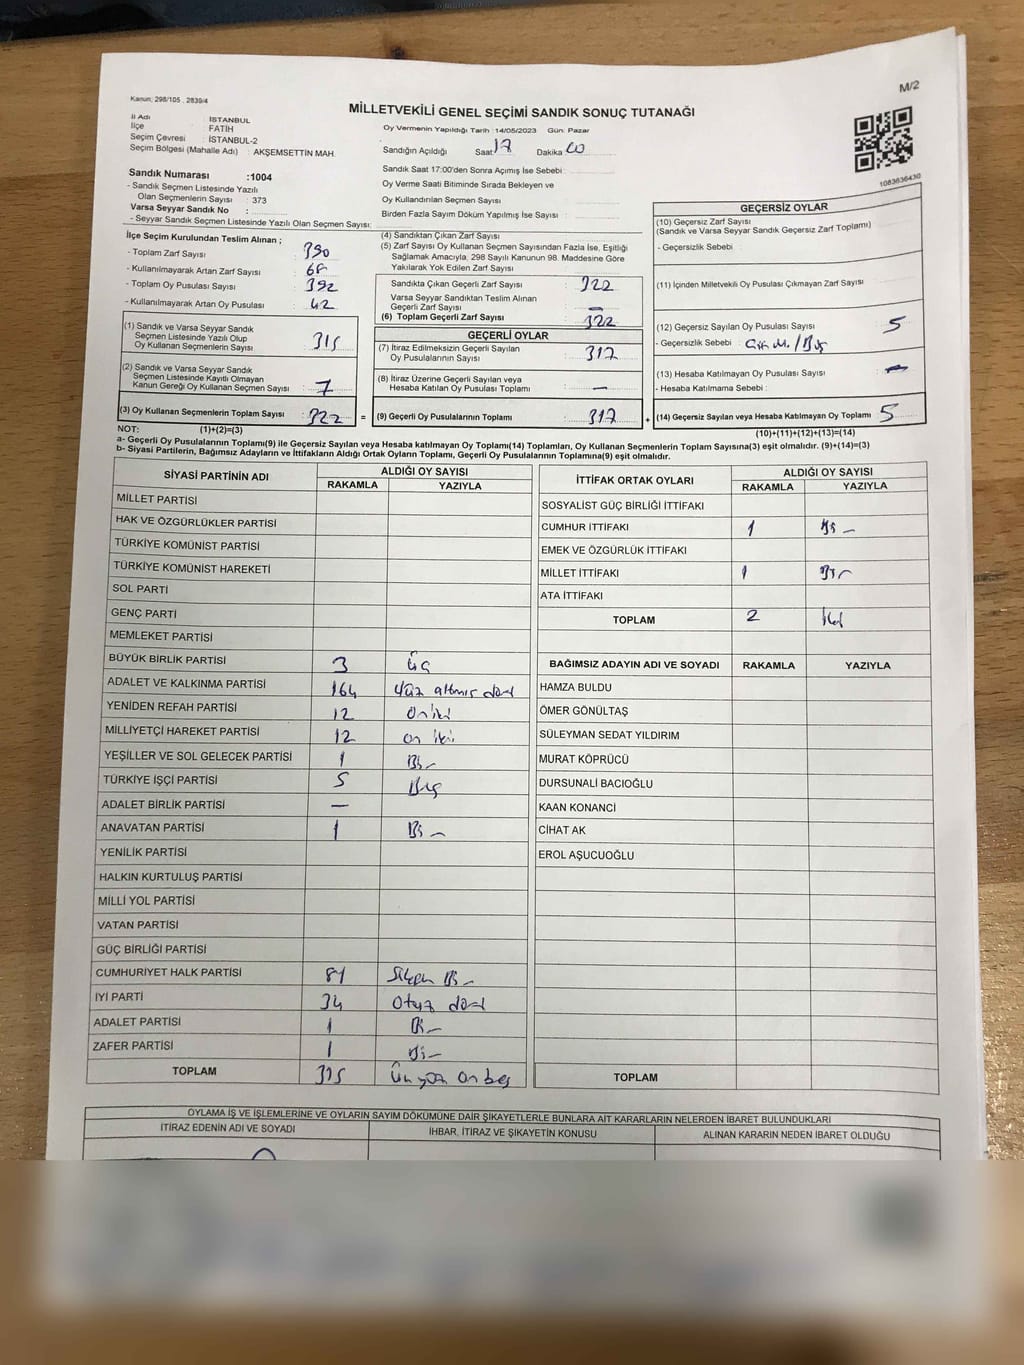 M/2
Kanun; 298/105 , 2839/4
MİLLETVEKİLİ GENEL SEÇİMİ SANDIK SONUÇ TUTANAĞI
İl Adı : İSTANBUL
İlçe : FATİH
Seçim Çevresi : İSTANBUL-2
Seçim Bölgesi (Mahalle Adı) : AKŞEMSETTİN MAH.
Sandık Numarası :1004
- Sandık Seçmen Listesinde Yazılı
Olan Seçmenlerin Sayısı : 373
Varsa Seyyar Sandık No :
- Seyyar Sandık Seçmen Listesinde Yazılı Olan Seçmen Sayısı:
Oy Vermenin Yapıldığı Tarih :14/05/2023 Gün: Pazar
Sandığın Açıldığı Saat 17 Dakika 00
Sandık Saat 17:00'den Sonra Açımış İse Sebebi :
Oy Verme Saati Bitiminde Sırada Bekleyen ve
Oy Kullandırılan Seçmen Sayısı :
Birden Fazla Sayım Döküm Yapılmış İse Sayısı :
1083636430
İlçe Seçim Kurulundan Teslim Alınan ;
- Toplam Zarf Sayısı : 390
- Kullanılmayarak Artan Zarf Sayısı : 68
- Toplam Oy Pusulası Sayısı : 392
- Kullanılmayarak Artan Oy Pusulası : 42
(1) Sandık ve Varsa Seyyar Sandık
Seçmen Listesinde Yazılı Olup
Oy Kullanan Seçmenlerin Sayısı : 315
(2) Sandık ve Varsa Seyyar Sandık
Seçmen Listesinde Kayıtlı Olmayan
Kanun Gereği Oy Kullanan Seçmen Sayısı : 7
(3) Oy Kullanan Seçmenlerin Toplam Sayısı : 322 =
(4) Sandıktan Çıkan Zarf Sayısı :
(5) Zarf Sayısı Oy Kullanan Seçmen Sayısından Fazla İse, Eşitliği
Sağlamak Amacıyla, 298 Sayılı Kanunun 98. Maddesine Göre
Yakılarak Yok Edilen Zarf Sayısı :
Sandıkta Çıkan Geçerli Zarf Sayısı : 322
Varsa Seyyar Sandıktan Teslim Alınan
Geçerli Zarf Sayısı : —
(6) Toplam Geçerli Zarf Sayısı : 322
GEÇERLİ OYLAR
(7) İtiraz Edilmeksizin Geçerli Sayılan
Oy Pusulalarının Sayısı : 317
(8) İtiraz Üzerine Geçerli Sayılan veya
Hesaba Katılan Oy Pusulası Toplamı : —
(9) Geçerli Oy Pusulalarının Toplamı : 317 +
GEÇERSİZ OYLAR
(10) Geçersiz Zarf Sayısı
(Sandık ve Varsa Seyyar Sandık Geçersiz Zarf Toplamı)
- Geçersizlik Sebebi :
(11) İçinden Milletvekili Oy Pusulası Çıkmayan Zarf Sayısı :
(12) Geçersiz Sayılan Oy Pusulası Sayısı : 5
- Geçersizlik Sebebi :
(13) Hesaba Katılmayan Oy Pusulası Sayısı : —
- Hesaba Katılmama Sebebi :
(14) Geçersiz Sayılan veya Hesaba Katılmayan Oy Toplamı : 5
NOT: (1)+(2)=(3)
(10)+(11)+(12)+(13)=(14)
a- Geçerli Oy Pusulalarının Toplamı(9) ile Geçersiz Sayılan veya Hesaba katılmayan Oy Toplamı(14) Toplamları, Oy Kullanan Seçmenlerin Toplam Sayısına(3) eşit olmalıdır. (9)+(14)=(3)
b- Siyasi Partilerin, Bağımsız Adayların ve İttifakların Aldığı Ortak Oyların Toplamı, Geçerli Oy Pusulalarının Toplamına(9) eşit olmalıdır.
SİYASİ PARTİNİN ADI
ALDIĞI OY SAYISI
RAKAMLA YAZIYLA
MİLLET PARTİSİ
HAK VE ÖZGÜRLÜKLER PARTİSİ
TÜRKİYE KOMÜNİST PARTİSİ
TÜRKİYE KOMÜNİST HAREKETİ
SOL PARTİ
GENÇ PARTİ
MEMLEKET PARTİSİ
BÜYÜK BİRLİK PARTİSİ 3 üç
ADALET VE KALKINMA PARTİSİ 164 Yüz altmış dört
YENİDEN REFAH PARTİSİ 12 on iki
MİLLİYETÇİ HAREKET PARTİSİ 12 on iki
YEŞİLLER VE SOL GELECEK PARTİSİ 1 Bir
TÜRKİYE İŞÇİ PARTİSİ 5 Beş
ADALET BİRLİK PARTİSİ —
ANAVATAN PARTİSİ 1 Bir
YENİLİK PARTİSİ
HALKIN KURTULUŞ PARTİSİ
MİLLİ YOL PARTİSİ
VATAN PARTİSİ
GÜÇ BİRLİĞİ PARTİSİ
CUMHURİYET HALK PARTİSİ 81 Seksen Bir
İYİ PARTİ 34 Otuz dört
ADALET PARTİSİ 1 Bir
ZAFER PARTİSİ 1 Bir
TOPLAM 315 Üç yüz on beş
İTTİFAK ORTAK OYLARI
ALDIĞI OY SAYISI
RAKAMLA YAZIYLA
SOSYALİST GÜÇ BİRLİĞİ İTTİFAKI
CUMHUR İTTİFAKI 1 Bir
EMEK VE ÖZGÜRLÜK İTTİFAKI
MİLLET İTTİFAKI 1 Bir
ATA İTTİFAKI
TOPLAM 2 İki
BAĞIMSIZ ADAYIN ADI VE SOYADI RAKAMLA YAZIYLA
HAMZA BULDU
ÖMER GÖNÜLTAŞ
SÜLEYMAN SEDAT YILDIRIM
MURAT KÖPRÜCÜ
DURSUNALİ BACIOĞLU
KAAN KONANCİ
CİHAT AK
EROL AŞUCUOĞLU
TOPLAM
OYLAMA İŞ VE İŞLEMLERİNE VE OYLARIN SAYIM DÖKÜMÜNE DAİR ŞİKAYETLERLE BUNLARA AİT KARARLARIN NELERDEN İBARET BULUNDUKLARI
İTİRAZ EDENİN ADI VE SOYADI İHBAR, İTİRAZ VE ŞİKAYETİN KONUSU ALINAN KARARIN NEDEN İBARET OLDUĞU